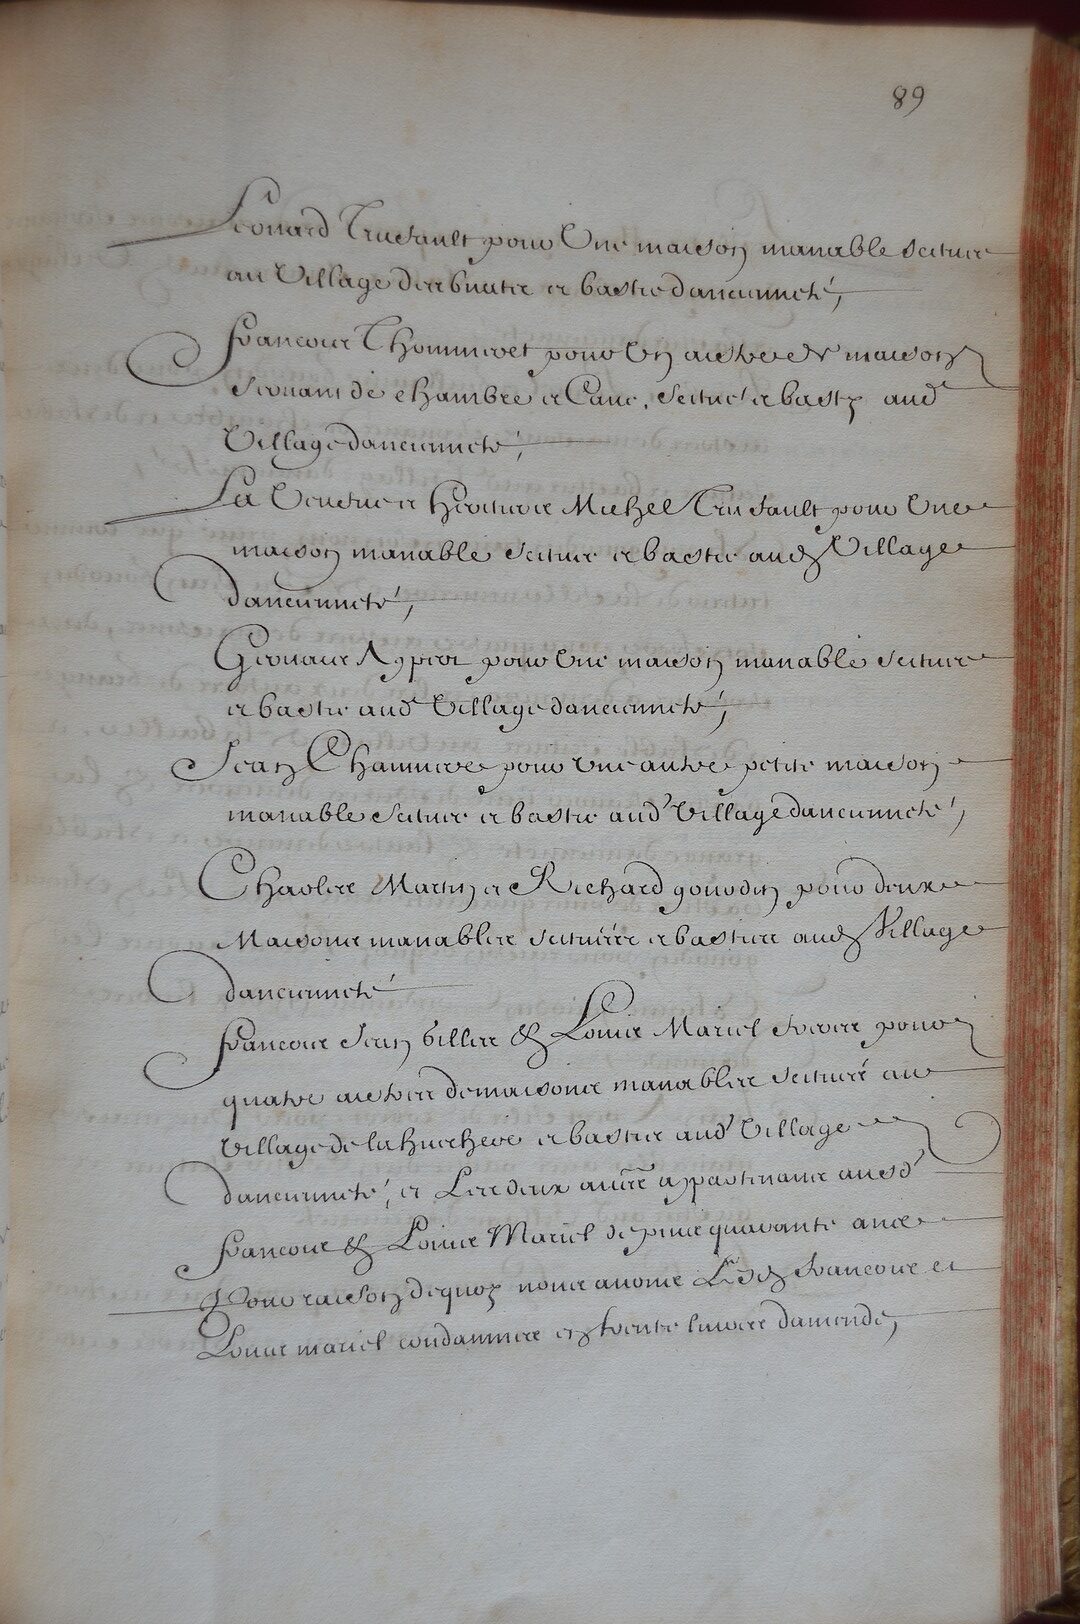 89
Leonard Trusault pour Une maison manable scituee
au Village des bruatz et bastie d'ancienneté,
Francois Thommeret pour Un austre de maison
servant de chambre et Cave, scitué et basty aud
Village d'ancienneté,
La Veufue et Heritiers Michel Trusault pour Une
maison manable scituee et bastie aud Village
d'ancienneté,
pour Une maison manable scituee
et bastie aud Village d'ancienneté,
Jean Chammere pour Une autre petite maison
manable scituee et bastie aud Village d'ancienneté,
Charles Martin et Richard gourdin pour deux
Maisons manables scituées et basties aud Village
d'ancienneté
Francois Jean Gilles & Louis Mariel freres pour
quatre austres de maisons manables scitués au
Village de la huchere et bastis aud Village
d'ancienneté, et Les deux aūres appartenans ausd
Francois & Louis Mariel depuis quarante ans
Pour raison de quoy nous auons Lesd Francois et
Louis mariel condamnés en trente liures damende,